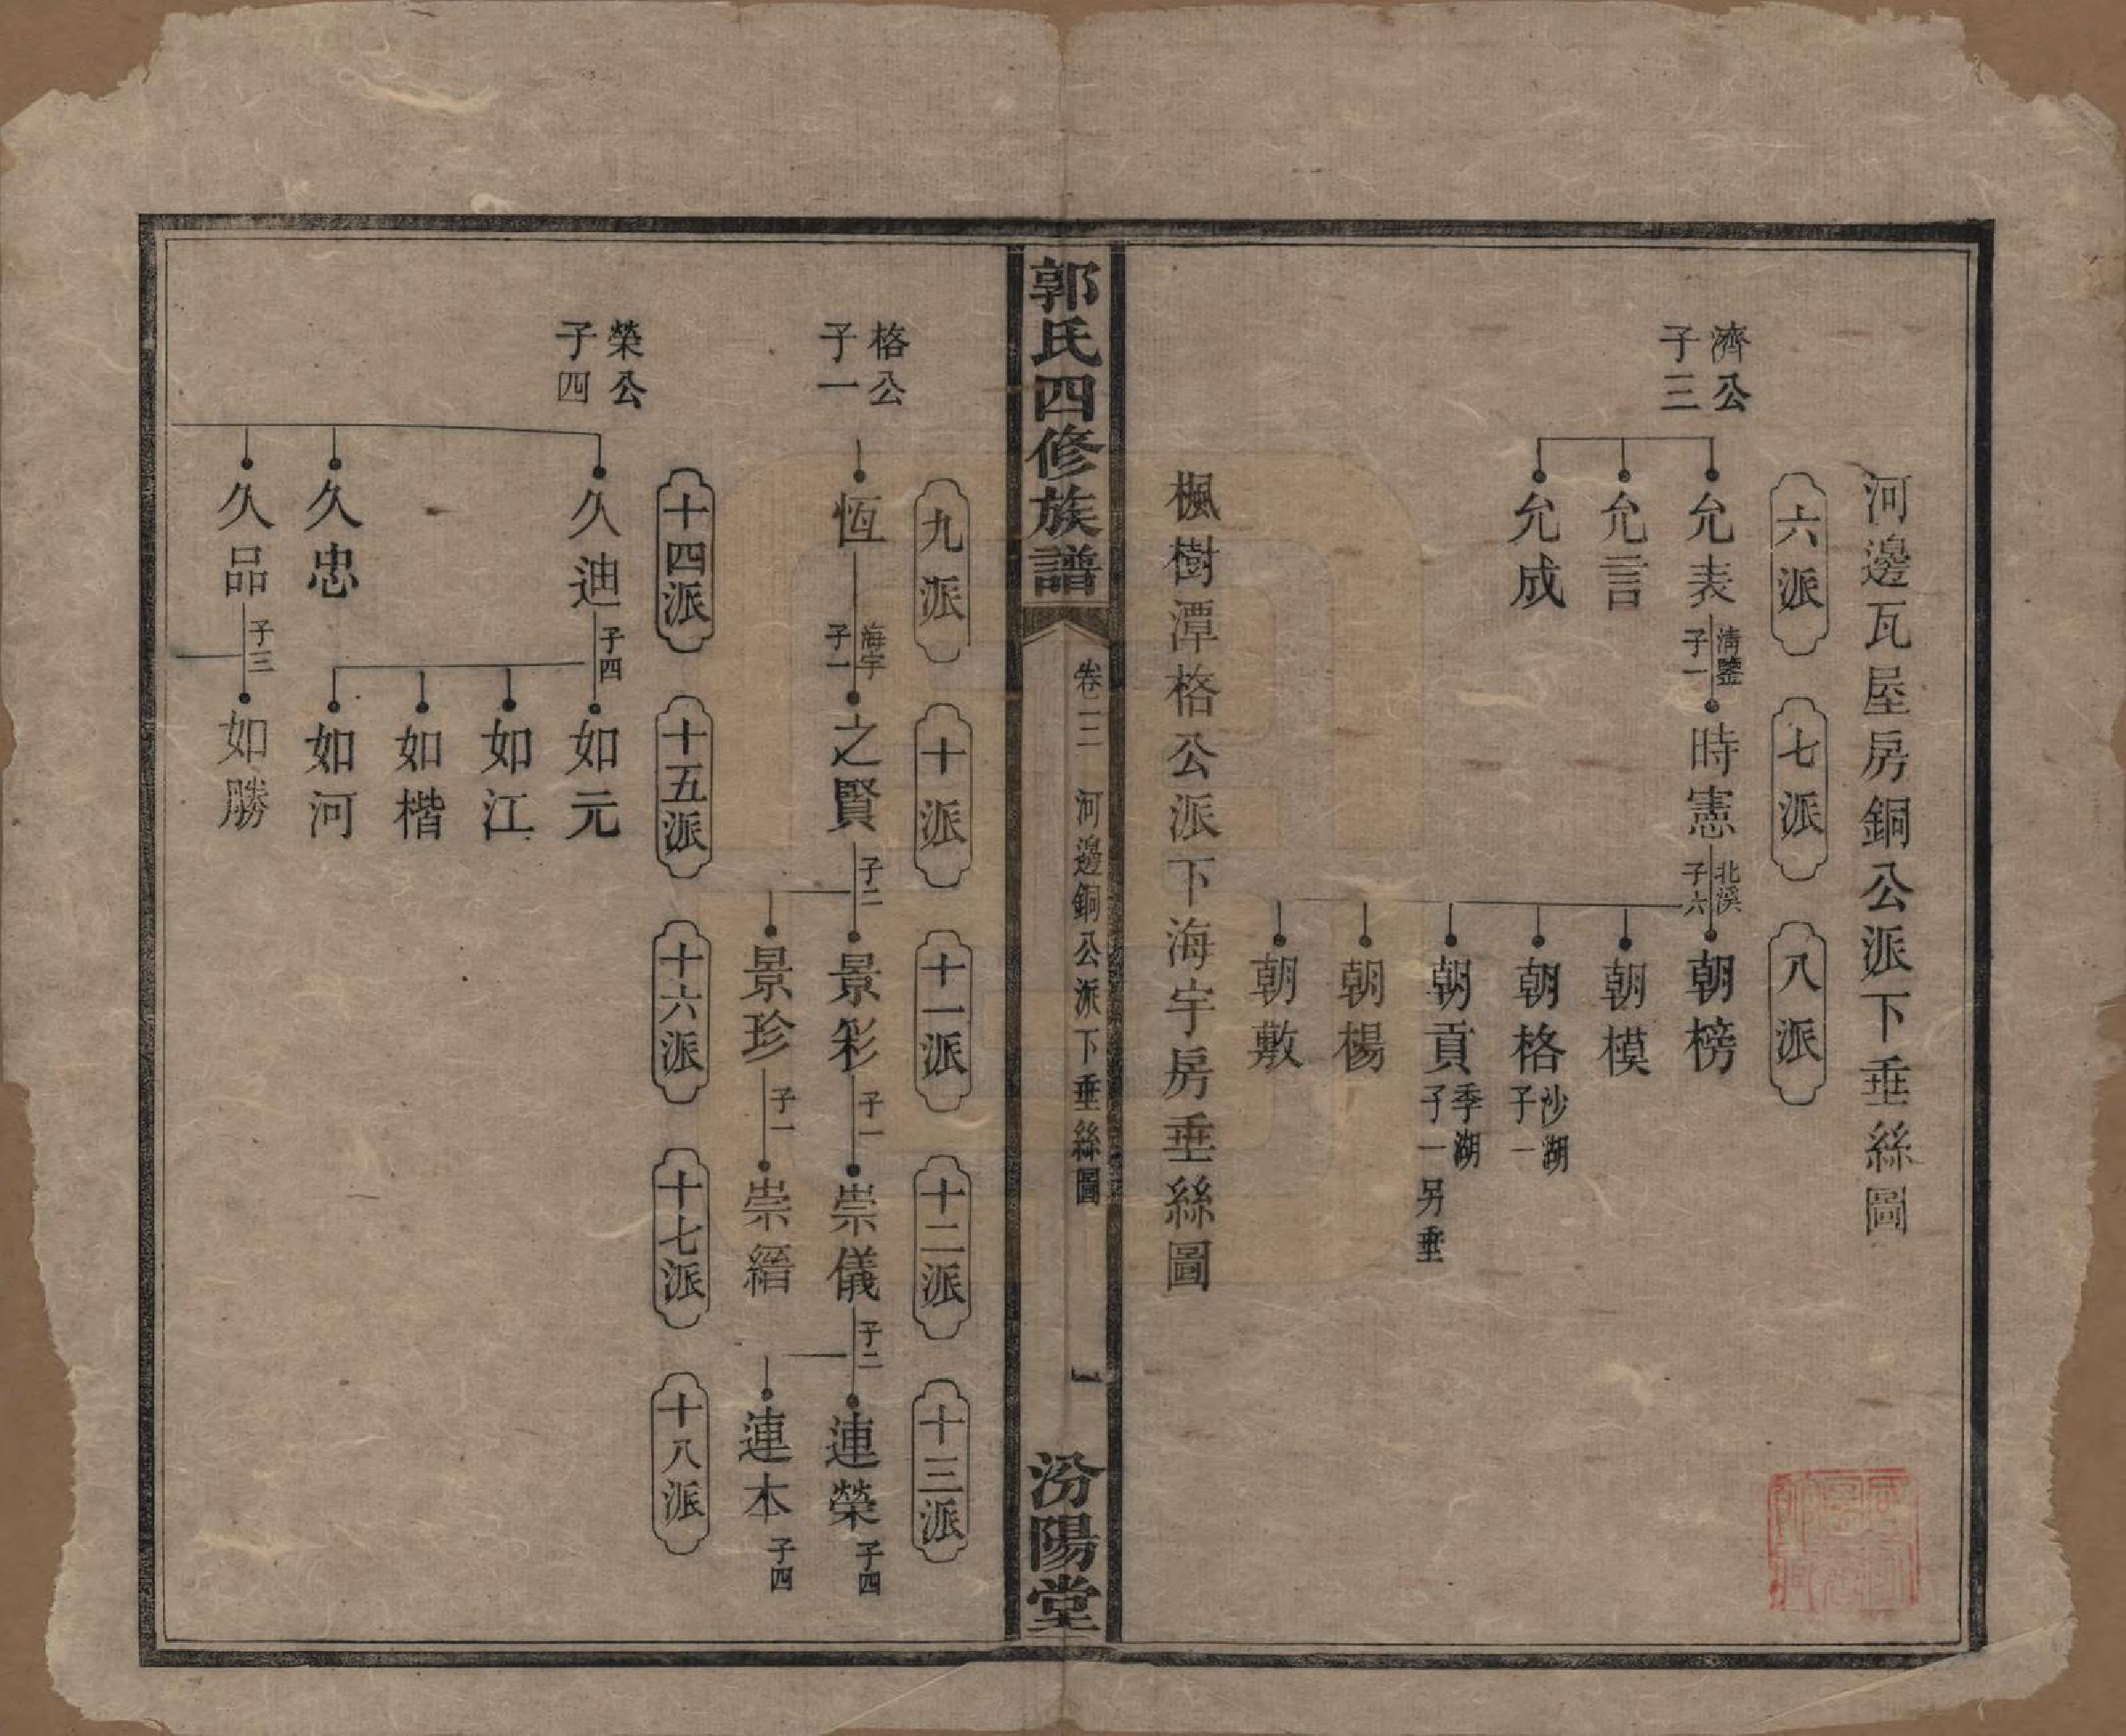 河邊瓦屋房銅公派下垂絲圖
六派
七派
八派
濟公
子三
允表
清鑒
子一
時憲
北溪
子六
朝榜
允言
朝模
允成
朝格
沙湖
子一
朝貢
季湖
子一另垂
朝楊
朝敷
楓樹潭格公派下海宇房垂絲圖
郭氏四修族譜
卷三
河邊銅公派下垂絲圖
一
汾陽堂
九派
十派
十一派
十二派
十三派
格公
子一
恆
海宇
子一
之賢
子二
景彩
子一
崇儀
子二
連榮
子四
景珍
子一
崇縉
連本
子四
十四派
十五派
十六派
十七派
十八派
榮公
子四
久迪
子四
如元
如江
如楷
久忠
如河
久品
子三
如勝